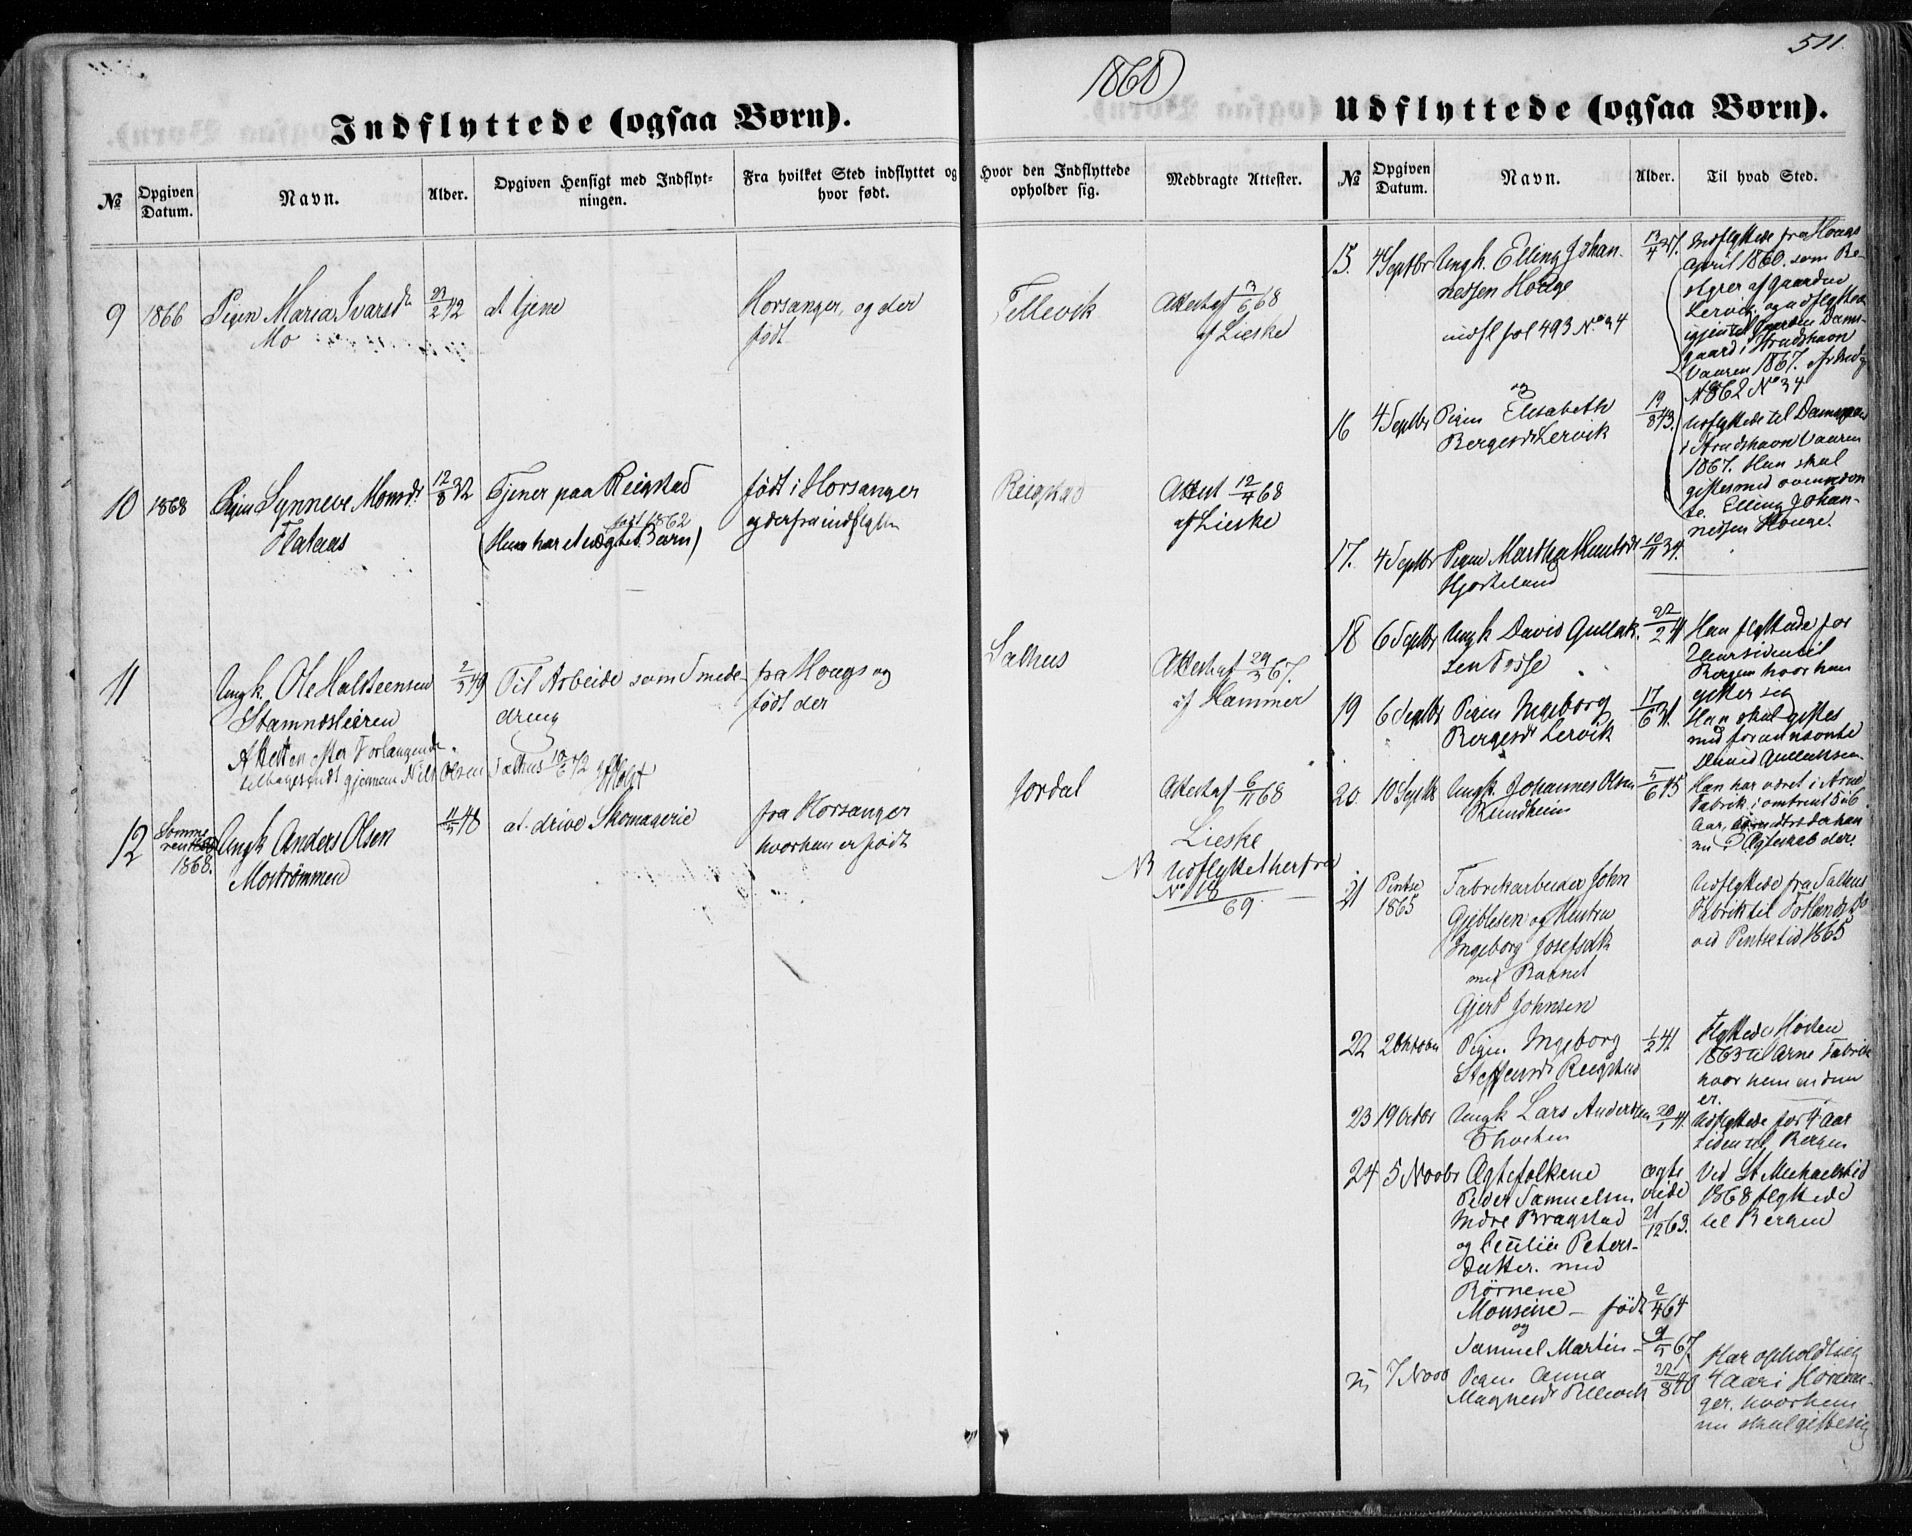 511.
1868
Indflyttede (ogsaa Børn).
Udflyttede (ogsaa Børn).
№
Opgiven Datum.
Navn.
Alder.
Opgiven Hensigt med Indflyt-
ningen.
Fra hvilket Sted indflyttet og
hvor født.
Hvor den Indflyttede
opholder sig.
Medbragte Attester.
№
Opgiven Datum.
Navn.
Alder.
Til hvad Sted.
9 1866 Pigen Maria Ivarsd 23/2 42 at tjene Horsanger, og der Tellevik Attest af 3/6 68
Mo født af Lieske
10 1868 Pigen Synneve Monsdr 12/8 32 Tjener paa Reigstad født i Horsanger Reigstad Attest 12/4 68
Flataas født 1862 og derfra indflytten af Lieske
(Hun har et uægte Barn)
11 Ungk. Ole Halsteensen 2/3 49 Til Arbeide som Smede- fra Hougs og Salhus Attest af 29/3 67.
Stamnesleiren dreng født der af Hammer
Attesten efter Forlangende
tilbagesendt gjennem Nils Olsen Salhus 10/6 72
12 Somme
ren
1868. Ungk Anders Olsen 11/5 48 at drive Skomagerie fra Horsanger Jordal Attest af 6/11 68
Mostrømmen hvor han er født Lieske
NB Udflyttet herfra
No 18
69
15. 4 Septbr Ungk. Elling Johan- 13/4 37. Indflyttede fra Hougs
nessen Houge April 1860. som Be-
indfl fol 493 No 34 styrer af Gaarden
Lervik, og udflyttede
igjen til Gaarden Dams-
gaard i Strudshavn
Vaaren 1867.
1862 No 34
og
16 4 Septbr Pigen Elisabeth 19/8 43. Udflyttede til Damsgaard
Bergesdr Lervik i Strudshavn Vaaren
1867. Hun skal
giftes med ovennævn
te. Elling Johan-
nessen Houge.
17. 4 Septbr Pigen Martha Knutsdr 10/11 34.
Hjorteland
18 6 Septbr Ungk David Gullak- 22/2 41 Han flyttede for
sen Fosse Aar siden til
Bergen hvor han
gifter sig
19 6 Septbr Pigen Ingeborg 17/6 31. Hun skal giftes
Bergesdr Lervik med forannævnte
David Gullaksen
20. 10 Septbr Ungk. Johannes Olsen 5/6 45 Han har været i Arne
Rundheim Fabrik i omtrent 5 à 6
Aar,
nu i Ægteskab der.
21 Pintse
1865 Fabrikarbeider John Udflyttede fra Salhus
Gjeblesen og Hustru Fabrik til
Ingeborg Josefsdtr ved Pintsetid 1865
med Barnet
Gjert Johnsen
22 2 Oktober Pigen Ingeborg 1/2 41 Flyttede Høsten
Steffensdr Reigstad 1863 til Arne Fabrik
hvor hun endnu
er.
23 19 Octbr Ungk Lars Andersen 20/1 41. Udflyttede for 4 Aar
siden til Bergen
24 5 Novbr Ægtefolkene ægte Ved St. Michaelstid
Peder Samuelsen viede 1868 flyttede
Indre Bragstad 21/12 63. til Bergen
og Cecilie Peters-
datter. med
Børnene
Monsine - født 2/4 64
og
Samuel Martin - 9/5 67.
25 7 Novb Pigen Anna 22/8 40 Har opholdt sig
Magnesdr Tellevik 4 Aar i Horsan-
ger. hvor hun
nu skal gifte sig